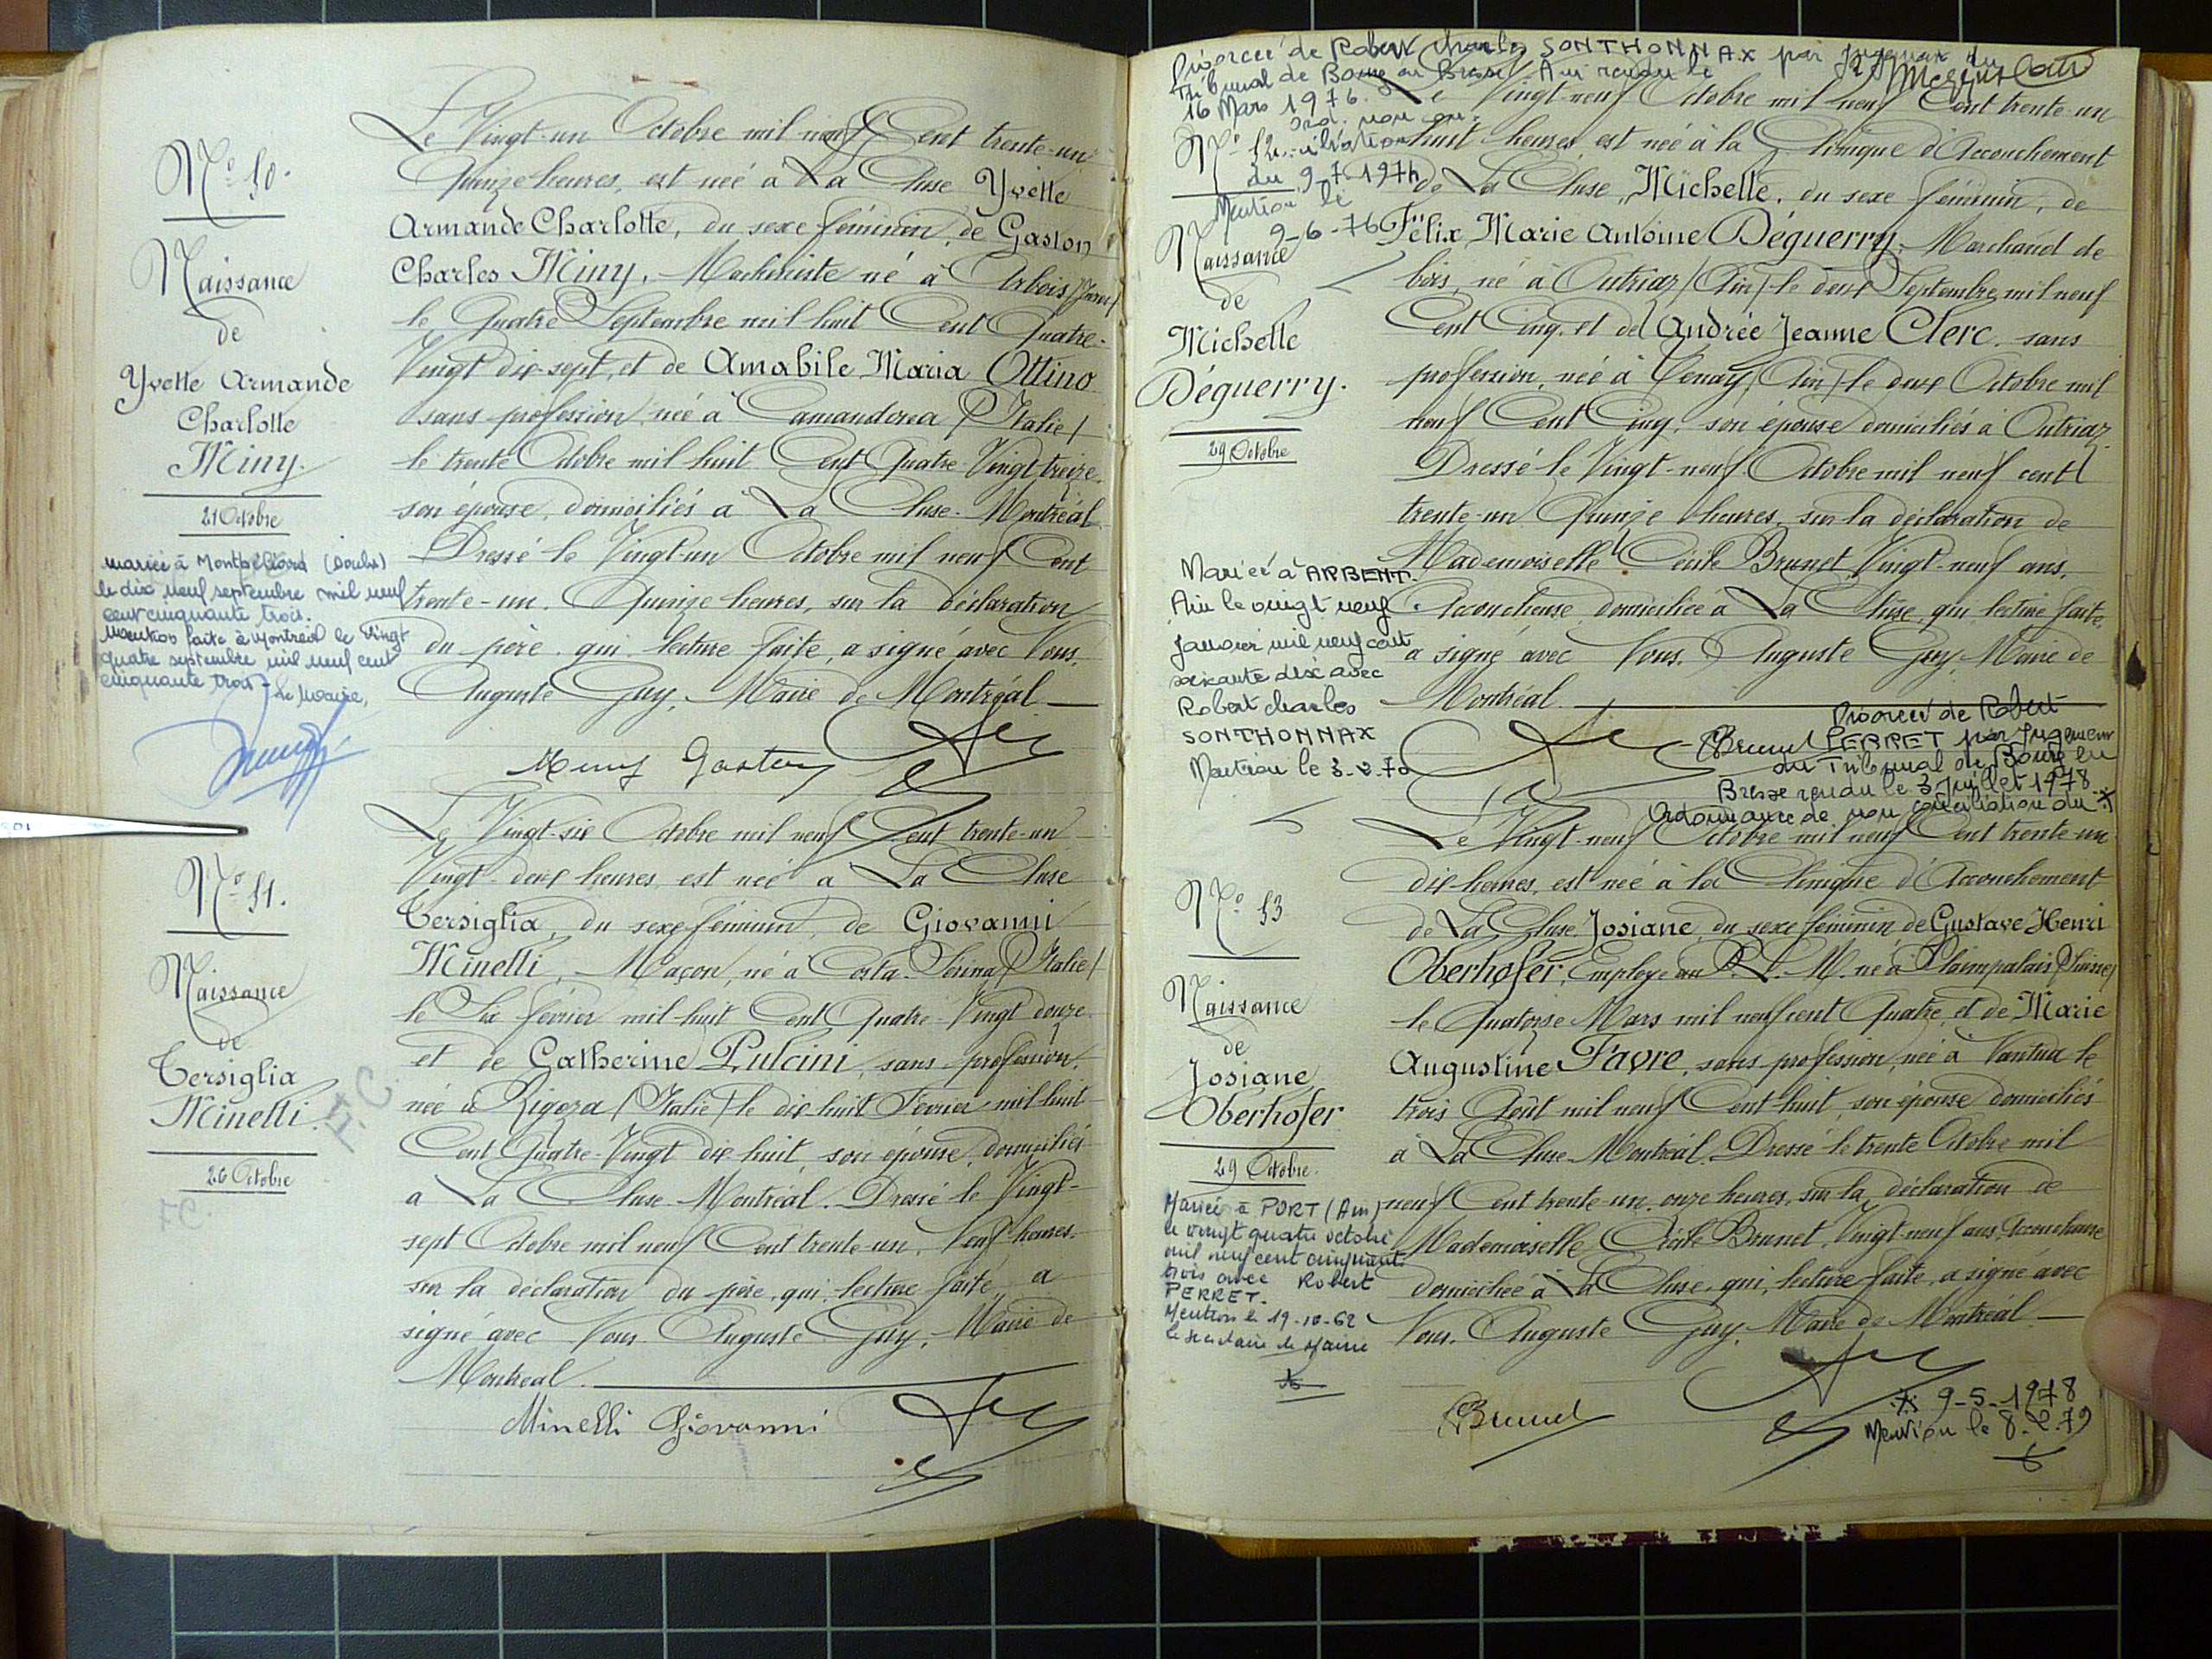 N° 50.
Naissance
de
Yvette Armande
Charlotte
Miny.
21 Octobre
mariée à Montbéliard (Doubs)
le dix neuf septembre mil neuf
cent cinquante trois.
Mention faite à Montréal le vingt
quatre septembre mil neuf cent
cinquante trois. Le Maire,
Le Vingt-un Octobre mil neuf Cent trente-un
Quinze heures, est née à La Cluse Yvette
Armande Charlotte, du sexe féminin, de Gaston
Charles Miny, Machiniste né à Arbois (Jura)
le Quatre Septembre mil huit Cent Quatre-
Vingt dix-sept, et de Amabile Maria Ottino
sans profession née à Camandona (Italie)
le trente Octobre mil huit Cent Quatre-Vingt treize
son épouse, domiciliés à La Cluse-Montréal.
Dressé le Vingt-un Octobre mil neuf Cent
trente-un. Quinze heures, sur la déclaration
du père qui lecture faite, a signé avec Nous,
Auguste Guy, Maire de Montréal.
Miny Gaston
N° 51.
Naissance
de
Tersiglia
Minelli.
26 Octobre
F.C.
F.C.
Le Vingt-six Octobre mil neuf Cent trente-un
Vingt-deux heures, est née à La Cluse
Tersiglia, du sexe féminin, de Giovanni
Minelli, Maçon, né à Costa-Serina (Italie)
le Six février mil huit Cent Quatre-Vingt douze
et de Catherine Pulcini, sans profession,
née à Rigoza (Italie) le dix huit Février mil huit
Cent Quatre-Vingt dix huit, son épouse, domiciliés
à La Cluse-Montréal. Dressé le Vingt-
sept Octobre mil neuf Cent trente-un, Neuf heures.
sur la déclaration du père, qui, lecture faite, a
signé avec Nous. Auguste Guy, Maire de
Montréal.
Minelli Giovanni
Divorcée de Robert Charles SONTHONNAX par Jugement du
Tribunal de Bourg en Bresse Ain rendu le
16 Mars 1976.
Ord. non con-
ciliation
du 9-7-1974
Mention le
9-6-76
N° 52
Naissance
de
Michelle
Déguerry.
29 Octobre
Mariée à ARBENT.
Ain le vingt neuf
Janvier mil neuf cent
soixante dix avec
Robert Charles
SONTHONNAX
Mention le 3-2-70
Le Vingt-neuf Octobre mil neuf Cent trente-un
huit heures, est née à la Clinique d'Accouchement
de La Cluse, Michelle, du sexe féminin, de
Félix Marie Antoine Déguerry, Marchand de
bois, né à Outriaz (Ain) le deux Septembre mil neuf
Cent Cinq, et de Andrée Jeanne Clerc, sans
profession, née à Tenay (Ain) le deux Octobre mil
neuf Cent Cinq, son épouse domiciliés à Outriaz
Dressé le Vingt-neuf Octobre mil neuf cent
trente-un Quinze heures, sur la déclaration de
Mademoiselle Cécile Brunet, Vingt-neuf ans,
Accoucheuse, domiciliée à La Cluse, qui, lecture faite,
a signé avec Nous. Auguste Guy Maire de
Montréal.
Brunet
Divorcée de Robert
PERRET par Jugement
du Tribunal de Bourg en
Bresse rendu le 3 Juillet 1978
Ordonnance de non conciliation du *
N° 53
Naissance
de
Josiane
Oberhofer
29 Octobre.
Mariée à PORT (Ain)
le vingt quatre octobre
mil neuf cent cinquante
trois avec Robert
PERRET.
Mention le 19-10-62
le secrétaire de Mairie
Le Vingt-neuf Octobre mil neuf Cent trente-un
dix heures, est née à la Clinique d'Accouchement
de La Cluse Josiane, du sexe féminin de Gustave Henri
Oberhofer, Employé au P.L.M. né à Plainpalais (Suisse)
le Quatorze Mars mil neuf cent Quatre, et de Marie
Augustine Favre, sans profession, née à Nantua le
trois Août mil neuf Cent-huit, son épouse domiciliés
à La Cluse-Montréal. Dressé le trente Octobre mil
neuf Cent trente-un, onze heures, sur la déclaration de
Mademoiselle Cécile Brunet, Vingt-neuf ans, Accoucheuse
domiciliée à La Cluse, qui, lecture faite, a signé avec
Nous. Auguste Guy. Maire de Montréal.
Brunet
* 9-5-1978
Mention le 8.2.79